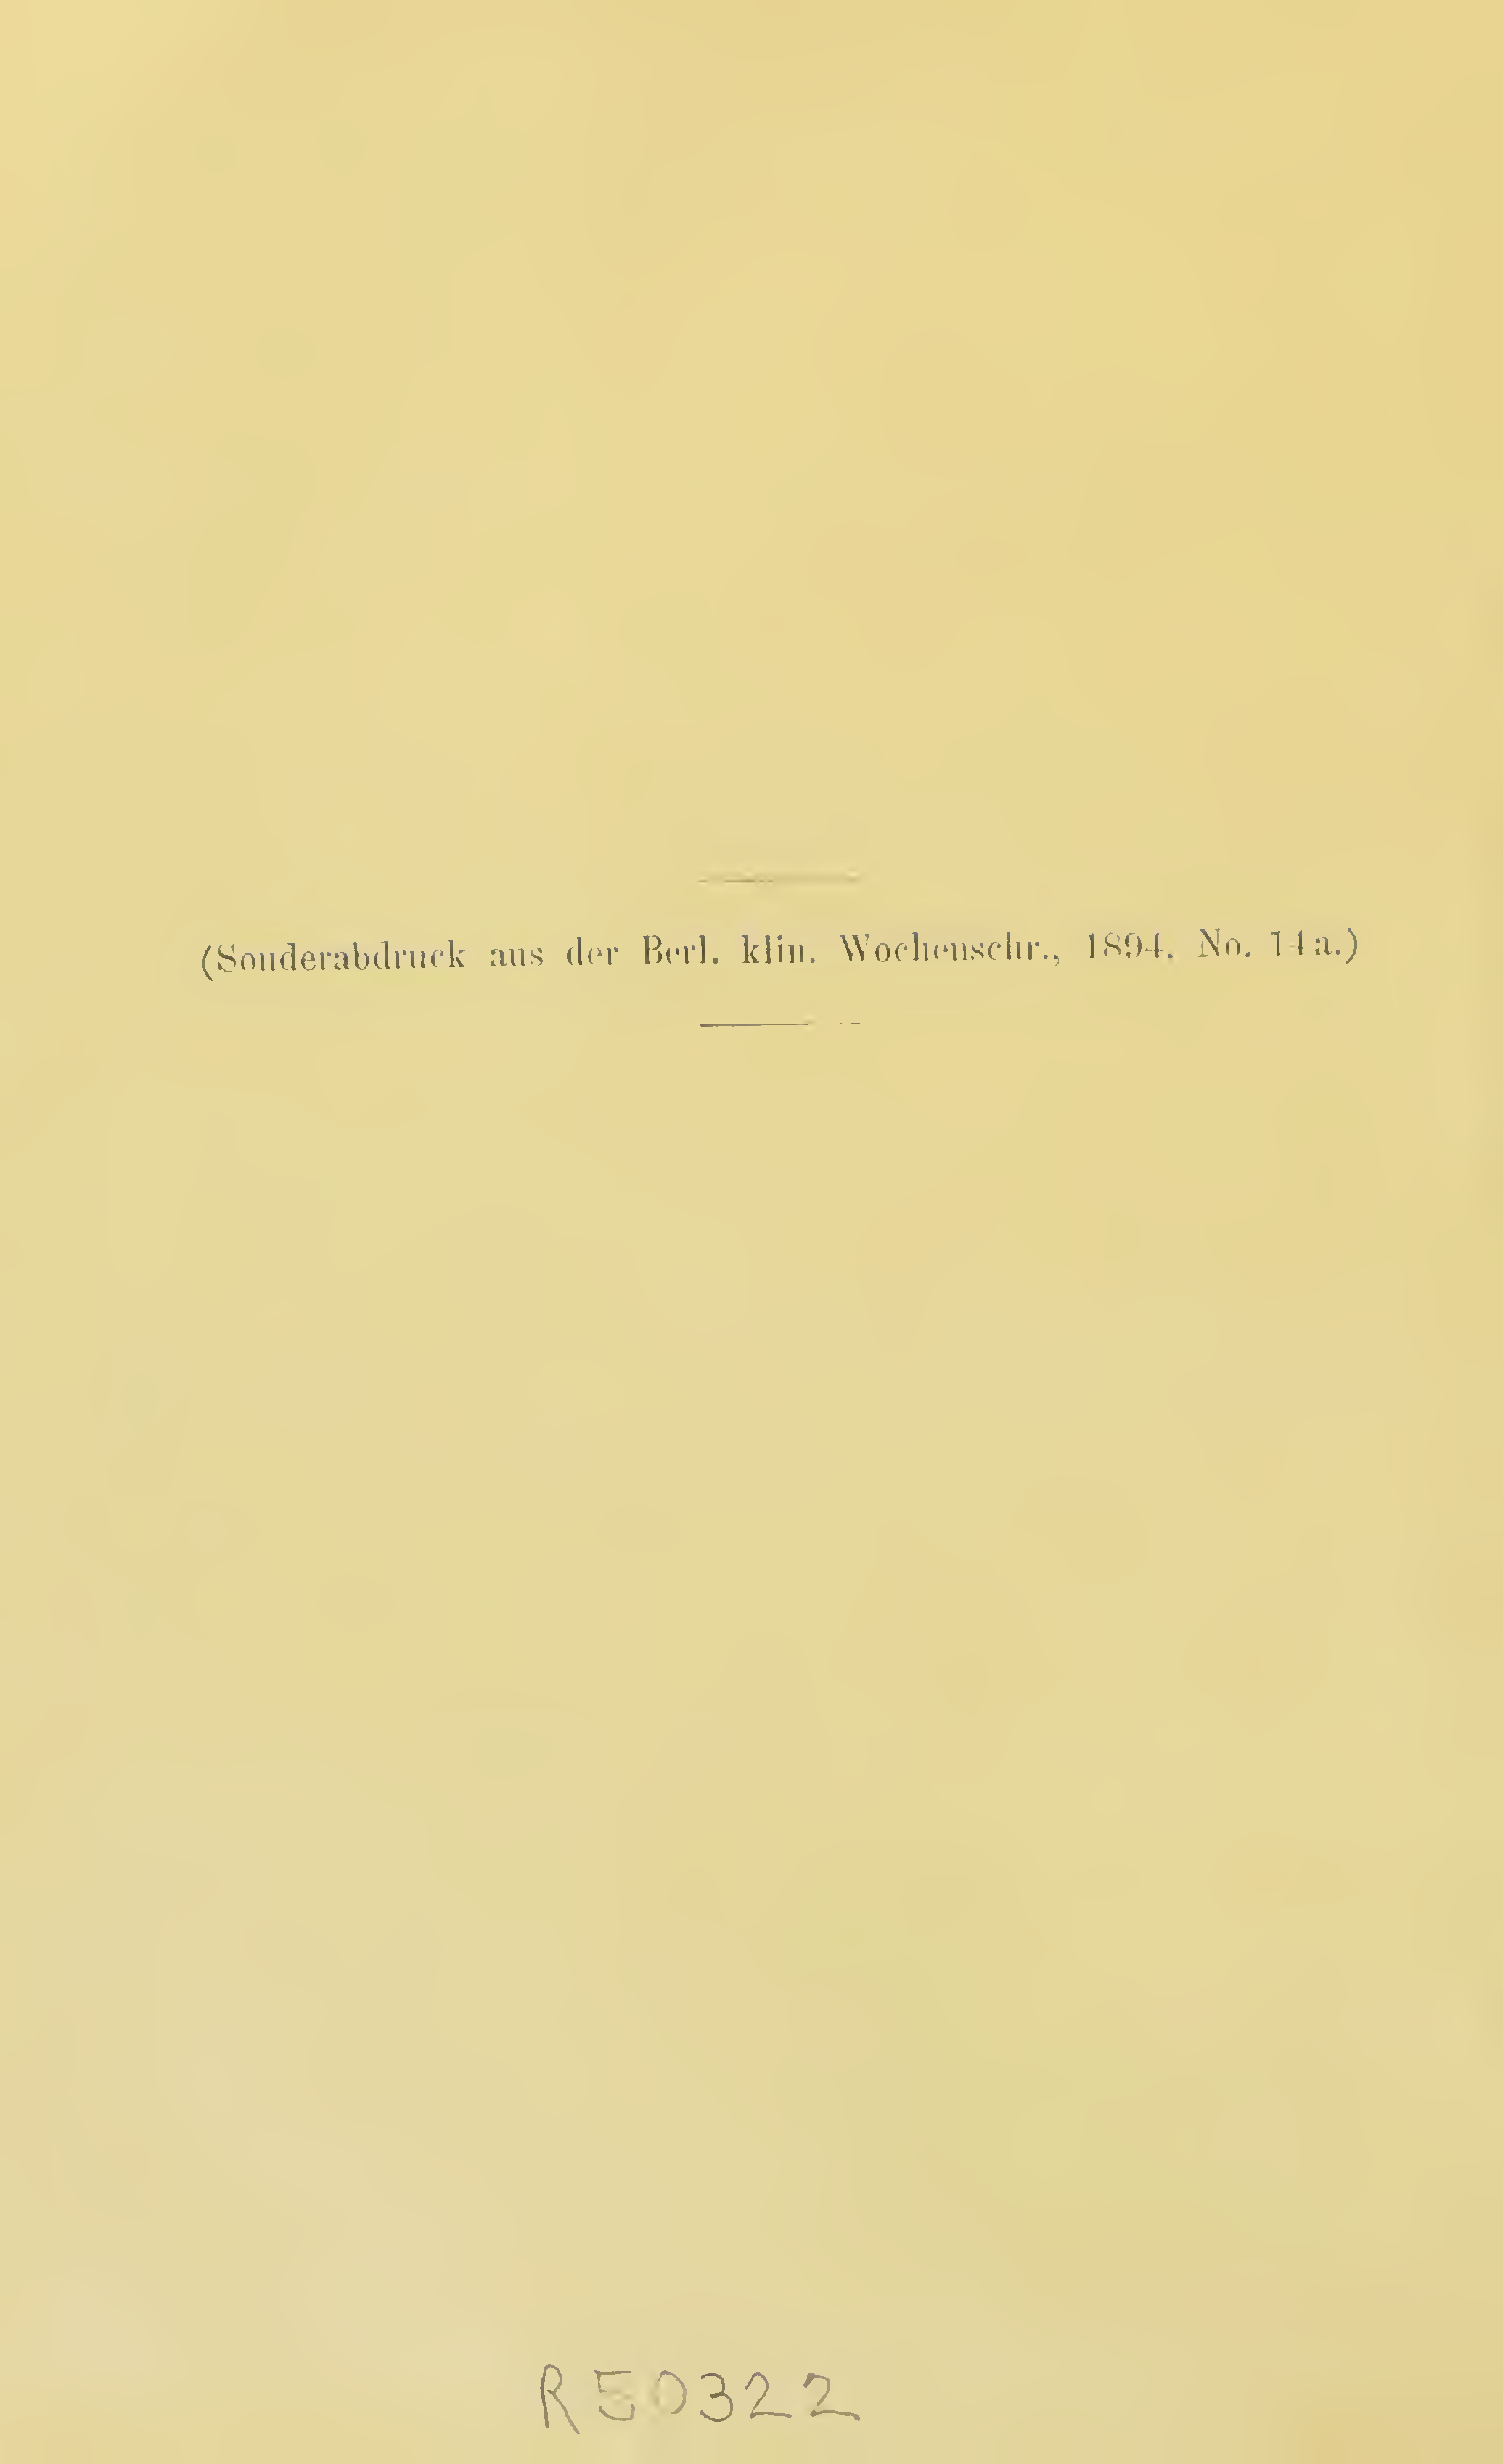 (Sonderabdruck aus der Berl. klin. Wochenschr., 1894. No. 14a.)
R50322